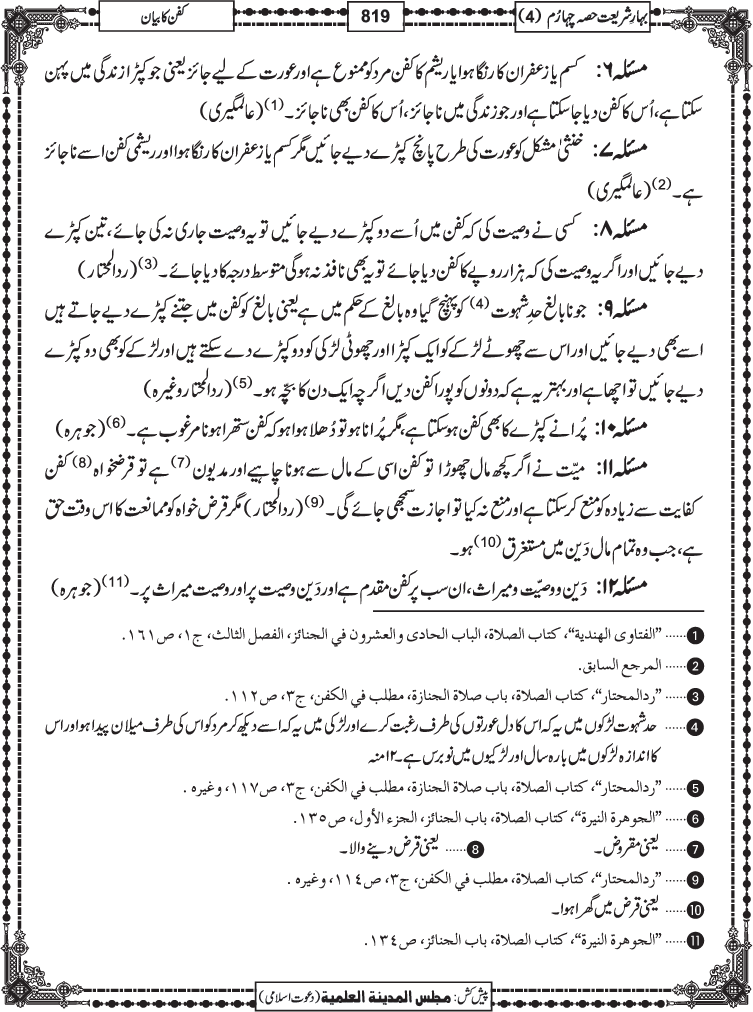 بہارِشریعت حصہ چہارم (4)
819
کفن کا بیان
مسئلہ ۶: کسم یا زعفران کا رنگا ہوا یا ریشم کا کفن مرد کو ممنوع ہے اور عورت کے لیے جائز یعنی جو کپڑا زندگی میں پہن
سکتا ہے، اُس کا کفن دیا جا سکتا ہے اور جو زندگی میں ناجائز، اُس کا کفن بھی ناجائز۔(1) (عالمگیری)
مسئلہ ۷: خنثیٰ مشکل کو عورت کی طرح پانچ کپڑے دیے جائیں مگر کسم یا زعفران کا رنگا ہوا اور ریشمی کفن اسے ناجائز
ہے۔(2) (عالمگیری)
مسئلہ ۸: کسی نے وصیت کی کہ کفن میں اُسے دو کپڑے دیے جائیں تو یہ وصیت جاری نہ کی جائے، تین کپڑے
دیے جائیں اور اگر یہ وصیت کی کہ ہزار روپے کا کفن دیا جائے تو یہ بھی نافذ نہ ہوگی متوسط درجہ کا دیا جائے۔(3) (ردالمحتار)
مسئلہ ۹: جو نابالغ حدِ شہوت(4) کو پہنچ گیا وہ بالغ کے حکم میں ہے یعنی بالغ کو کفن میں جتنے کپڑے دیے جاتے ہیں
اسے بھی دیے جائیں اور اس سے چھوٹے لڑکے کو ایک کپڑا اور چھوٹی لڑکی کو دو کپڑے دے سکتے ہیں اور لڑکے کو بھی دو کپڑے
دیے جائیں تو اچھا ہے اور بہتر یہ ہے کہ دونوں کو پورا کفن دیں اگرچہ ایک دن کا بچّہ ہو۔(5) (ردالمحتار وغیرہ)
مسئلہ ۱۰: پُرانے کپڑے کا بھی کفن ہو سکتا ہے، مگر پُرانا ہو تو دُھلا ہوا ہو کہ کفن ستھرا ہونا مرغوب ہے۔(6) (جوہرہ)
مسئلہ ۱۱: میّت نے اگر کچھ مال چھوڑا تو کفن اسی کے مال سے ہونا چاہیے اور مدیون(7) ہے تو قرضخواہ(8) کفن
کفایت سے زیادہ کو منع کر سکتا ہے اور منع نہ کیا تو اجازت سمجھی جائے گی۔(9) (ردالمحتار) مگر قرض خواہ کو ممانعت کا اس وقت حق
ہے، جب وہ تمام مال دَین میں مستغرق(10) ہو۔
مسئلہ ۱۲: دَین و وصیّت و میراث، ان سب پر کفن مقدم ہے اور دَین وصیت پر اور وصیت میراث پر۔(11) (جوہرہ)
1 ...... ”الفتاوی الهندية“، کتاب الصلاة، الباب الحادی والعشرون في الجنائز، الفصل الثالث، ج١، ص١٦١.
2 ...... المرجع السابق.
3 ...... ”ردالمحتار“، کتاب الصلاة، باب صلاة الجنازة، مطلب في الكفن، ج٣، ص١١٢.
4 ...... حد شہوت لڑکوں میں یہ کہ اس کا دل عورتوں کی طرف رغبت کرے اور لڑکی میں یہ کہ اسے دیکھ کر مرد کو اس کی طرف میلان پیدا ہو اور اس
کا اندازہ لڑکوں میں بارہ سال اور لڑکیوں میں نو برس ہے۔ ۱۲ منہ
5 ...... ”ردالمحتار“، کتاب الصلاة، باب صلاة الجنازة، مطلب في الكفن، ج٣، ص١١٧، وغیره .
6 ...... ”الجوهرة النيرة“، کتاب الصلاة، باب الجنائز، الجزء الأول، ص١٣٥.
7 ...... یعنی مقروض۔ 8 ...... یعنی قرض دینے والا۔
9 ...... ”ردالمحتار“، کتاب الصلاة، مطلب في الكفن، ج٣، ص١١٤، وغیره .
10 ...... یعنی قرض میں گھرا ہوا۔
11 ...... ”الجوهرة النيرة“، کتاب الصلاة، باب الجنائز، ص١٣٤.
پیش کش: مجلس المدينة العلمية (دعوت اسلامی)